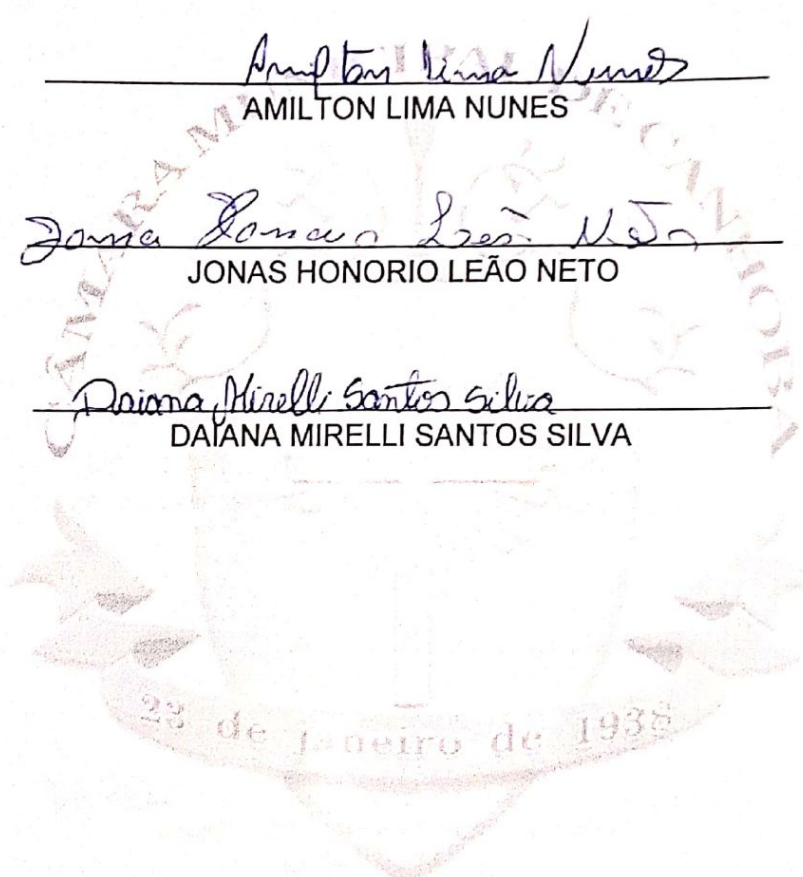 Amilton Lima Nunes
AMILTON LIMA NUNES
Jonas Honorio Leão Neto
JONAS HONORIO LEÃO NETO
Daiana Mirelli Santos Silva
DAIANA MIRELLI SANTOS SILVA
CÂMARA DE CANHOBA
23 de janeiro de 1938